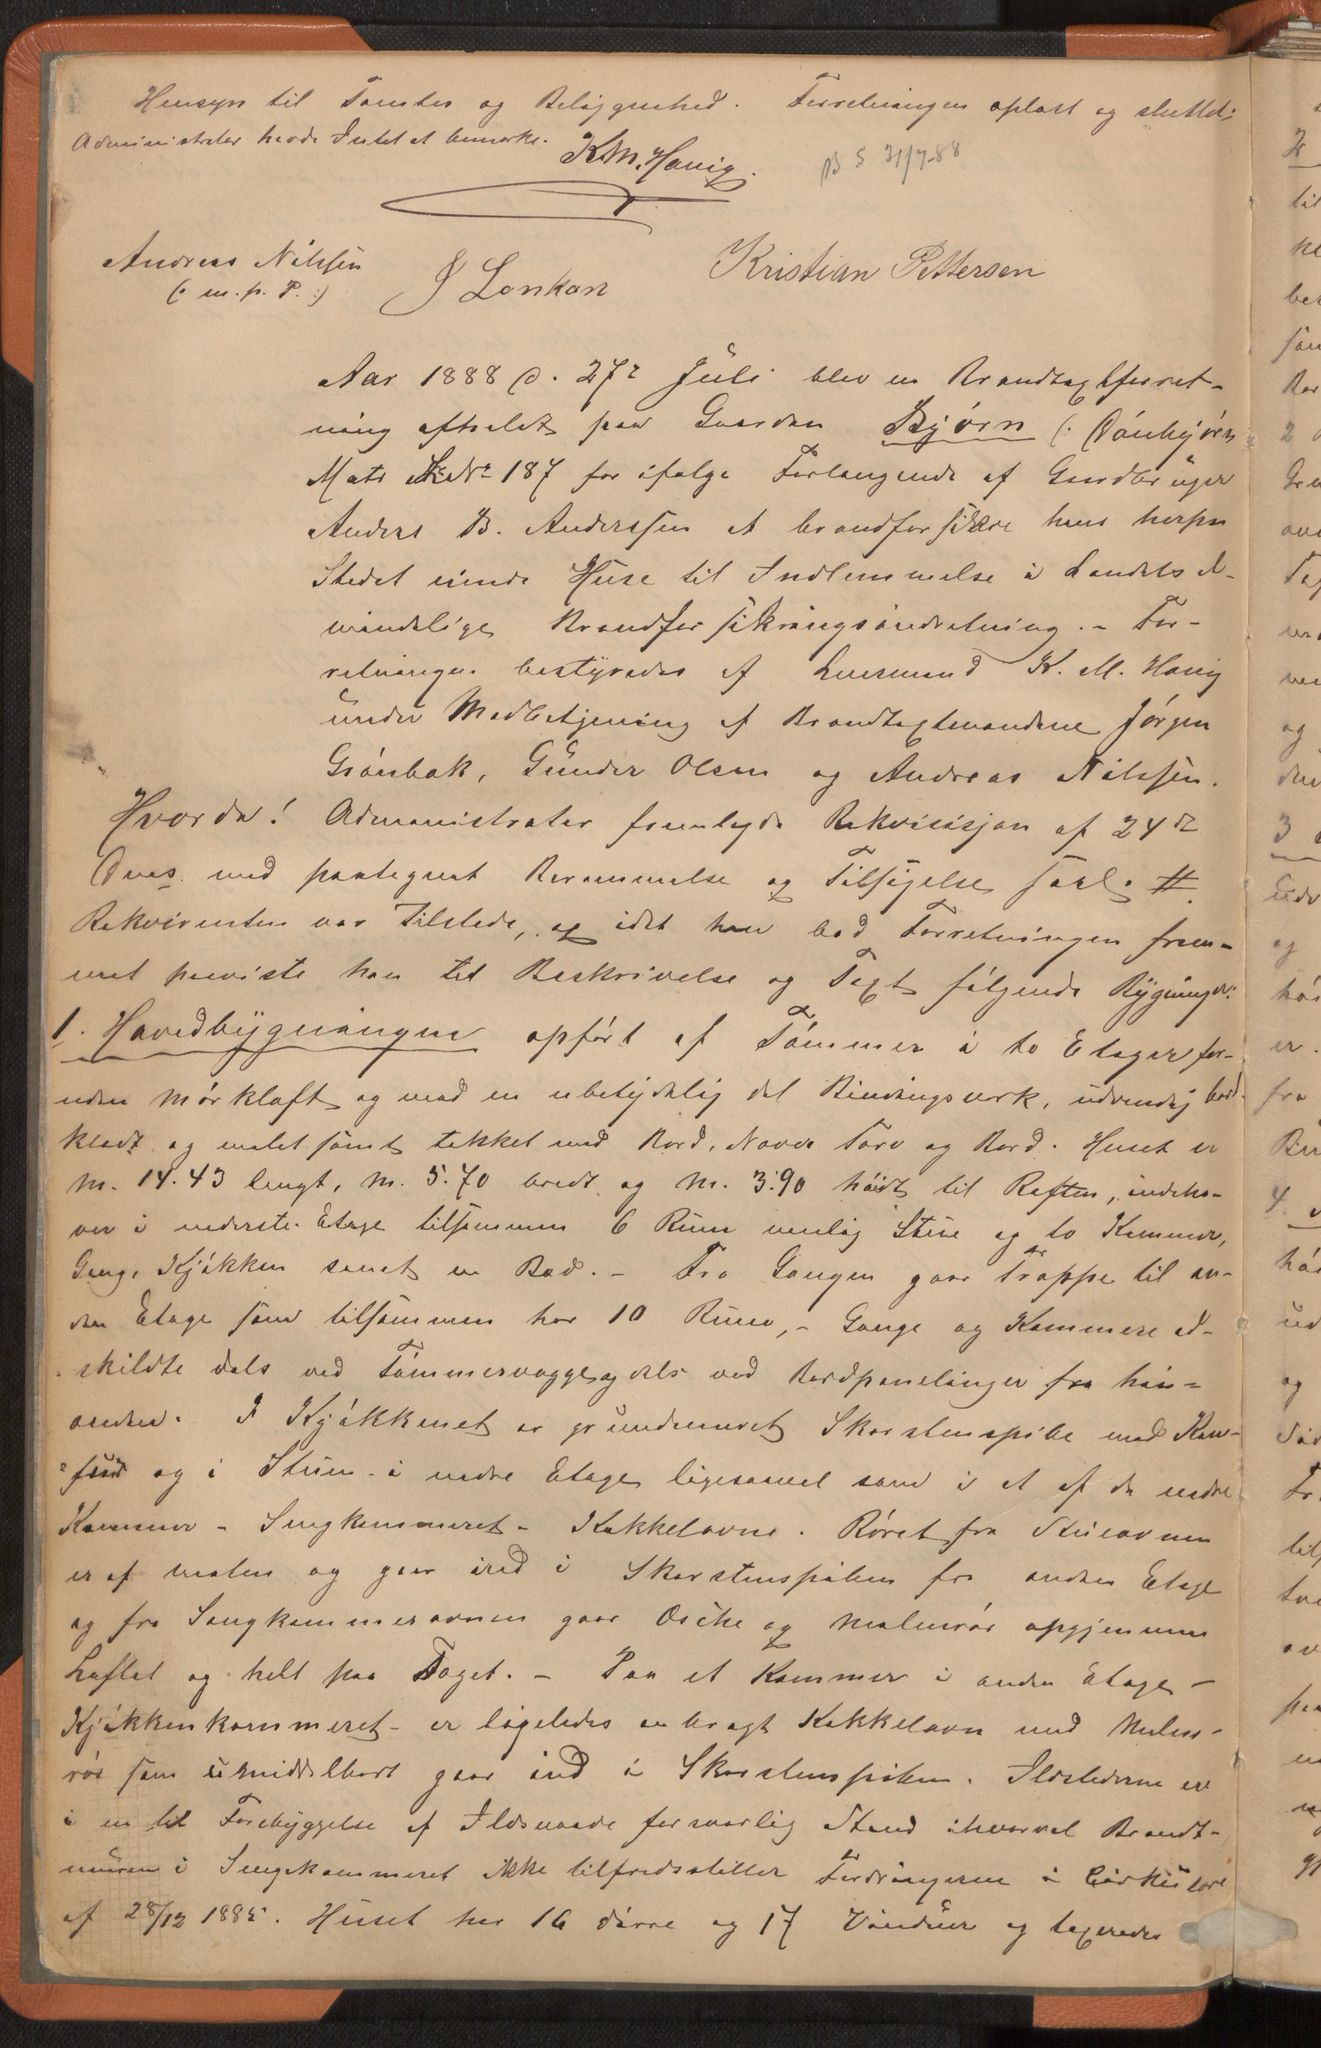 Hensyn til Tomten og Beliggenhed. Forretningen oplæst og sluttet;
Administrator havde Intet at bemærke.
K M. Havig.
31/7-88
Andreas Nilssen
(: m. p. P. :)
J Lonkan
Kristian Pettersen
Aar 1888 d. 27de Juli blev en Brandtaxtforret-
ning afholdt paa Gaarden Bjørn (: Dønbjørn
Matr LNr 187 for ifølge Forlangende af Gaardbruger
Anders B. Anderssen at brandforsikre hans herpaa
Stedet eiende Huse til Indlemmelse i Landets al-
mindelige Brandforsikringsindretning. - For-
retningen bestyredes af Lensmand K. M. Havig
under Medbetjening af Brandtaxtmændene Jørgen
Grønbæk, Gunder Olsen og Andreas Nilssen.
Hvorda! Administrator fremlagde Rekvisisjon af 24de
Ds. med paategnet Berammelse og Tilsigelse saal. #
Rekvirenten var tilstede, og idet han bad Forretningen frem-
met paaviste han til Beskrivelse og Taxt følgende Bygninger:
1. Hovedbygningen opført af Tømmer i to Etager for-
uden Mørkloft og med en ubetydelig del Bindingsverk, udvendig bord-
klædt og malet samt tækket med Bord, Næver Torv og Bord. Huset er
M. 14.43 langt, M. 5.70 bredt og M. 3.90 høidt til Raften, indeho-
der i nederste Etage tilsammen 6 Rum nemlig Stue og to Kammer,
Gang, Kjøkken samt en Bod. - Fra Gangen gaar Trappe til an-
den Etage som tilsammen har 10 Rum, - Gange og Kammere ad-
skildte dels ved Tømmervægge og dels ved Bordpanelinger fra hin-
anden. I Kjøkkenet er grundmuret Skorstenspibe med Kom-
fuur og i Stuen i nedre Etage ligesaavel som i et af de nedre
Kammer - Sengkammeret - Kakkelovne. Røret fra Stueovnen
er af malm og gaar ind i Skorstenspiben fra anden Etage
og fra Sengkammerovnen gaar Osche og Malmrør opgjennem
Loftet og helt paa Taget. - Paa et Kammer i anden Etage -
Kjøkkenkammeret - er ligeledes anbragt Kakkelovn med Malm-
rør som umiddelbart gaar ind i Skorstenspiben. Ildstederne er
i en til Forebyggelse af Ildsvaade forsvarlig Stand ihvorvel Brandt-
muren i Sengekammeret ikke tilfredsstiller Fordringerne i Cirkulære
af 28/12 1885. Huset har 16 dørre og 17 Vinduer og taxeredes